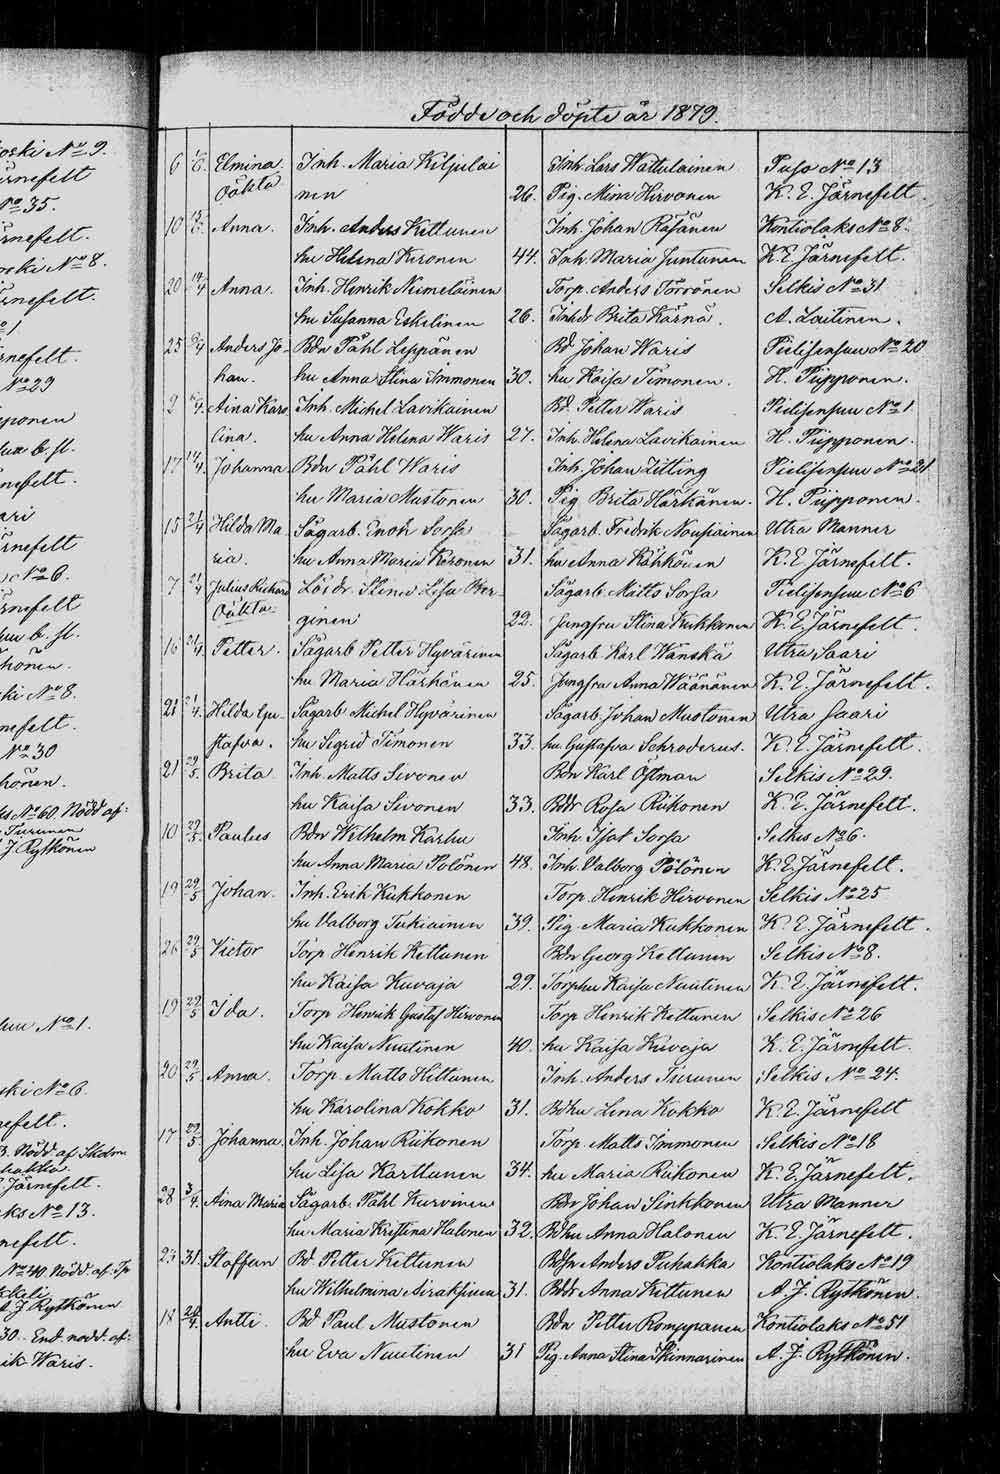 oski No 9.
ärnefelt
No 35.
ärnefelt.
oski No 8.
ärnefelt.
o 1
rnefelt.
No 29
pponen
nefelt.
ari
ärnefelt
No 6.
ärnefelt
könen.
ski No 8.
nefelt.
No 30
hönen.
ds No 60. Nödd af:
Turunen
J. Rytkönen
No 1.
ski No 6.
efelt.
3. Nödd af
Järnefelt.
aks No 13.
nefelt.
No 40. Nödd. af
A J Rytkönen
30. End. nödd. af:
ik Waris.
Födde och döpte år 1879.
6 Elmina Inh. Maria Kilpeläi Inh. Lars Wattulainen Puso No 13
Oäkta nen 26. Pig. Mina Hirvonen K. E. Järnefelt.
10 Anna. Inh. Anders Kettunen Inh. Johan Räsänen Kontiolaks No 8.
hu Helena Keronen 44. Inh. Maria Juntunen K. E. Järnefelt.
20 14/4 Anna. Inh. Henrik Niemeläinen Torp. Anders Törrönen Selkis No 31
hu Susanna Eskelinen 26. Inhdr Brita Kärnä. A. Laitinen.
25 Anders Jo- Bdn Påhl Leppänen Bd Johan Waris Pielisensuu No 20
han. hu Anna Stina Immonen 30. hu Kaisa Timonen. H. Piipponen.
2 Aina Karo Inh. Michel Lavikainen Bd. Petter Waris Pielisensuu No 1
lina. hu Anna Helena Waris 27. Inh. Helena Lavikainen H. Piipponen.
17 14/4 Johanna Bdn Påhl Waris Inh. Johan Zitting Pielisensuu No 21
hu Maria Mustonen 30. Pig Brita Härkänen. H. Piipponen.
15 21/4 Hilda Ma Sågarb. Enok Sorsa Sågarb. Fredrik Nousiainen Utra Manner
ria. hu Anna Maria Koronen 31. hu Anna Räkkönen K. E. Järnefelt.
7 21/4 Julius Richard Lösdr. Stina Lisa Ber- Sågarb. Matts Sorsa Pielisensuu No 6
Oäkta ginen 22. Jungfru Stina Kukkonen K. E. Järnefelt.
16 21/4. Petter. Sågarb Petter Hyvärinen Sågarb Karl Wänskä Utra Saari
hu Maria Härkönen 25. Jungfru Anna Wäänänen K. E. Järnefelt.
21 21/4. Hilda Gu- Sågarb Michel Hyvärinen Sågarb. Johan Mustonen Utra Saari
stafva. hu Sigrid Timonen 33. hu Gustafva Schroderus. K. E. Järnefelt.
21 29/5. Brita. Inh. Matts Sivonen Bdn Karl Östman Selkis No 29.
hu Kaisa Sivonen 33. Bddr Rosa Riikonen K. E. Järnefelt.
10 29/5. Paulus Bdn Wilhelm Karhu Inh Isak Sorsa Selkis No 6.
hu Anna Maria Pölönen 48. Inh. Valborg Pölönen K. E. Järnefelt.
19 29/5 Johan. Inh. Erik Kukkonen Torp. Henrik Hirvonen Selkis No 25
hu Valborg Tukiainen 39. Pig. Maria Kukkonen K. E. Järnefelt.
26 29/5 Victor Torp Henrik Kettunen Bdn Georg Kettunen Selkis No 8.
hu Kaisa Kuvaja 29. Torphu Kaisa Nuutinen K. E. Järnefelt.
19 29/5 Ida. Torp Henrik Gustaf Hirvonen Torp Henrik Kettunen Selkis No 26
hu Kaisa Nuutinen 40. hu Kaisa Kuvaja K. E. Järnefelt.
20 29/5 Anna. Torp. Matts Hiltunen Inh. Anders Turunen Selkis No 24.
hu Karolina Kokko 31. Bdhu Lena Kokko K. E. Järnefelt
17 29/5. Johanna. Inh. Johan Riikonen Torp. Matts Immonen Selkis No 18
hu Lisa Karttunen 34. hu Maria Riikonen K. E. Järnefelt.
28 3/4. Aina Maria Sågarb. Påhl Kurvinen Bdn Johan Sinkkonen Utra Manner
hu Maria Kristina Halonen 32. Bdhu Anna Halonen K. E. Järnefelt.
23 31. Staffan Bd Petter Kettunen Bdsn Anders Puhakka Kontiolaks No 19
hu Wilhelmina Airaksinen 31. Bddr Anna Kettunen A. J. Rytkönen.
18 24/4. Antti. Bd Paul Mustonen Bdn Petter Romppanen Kontiolaks No 51
hu Eva Nuutinen 31 Pig. Anna Stina Skinnarinen A. J. Rytkönen.